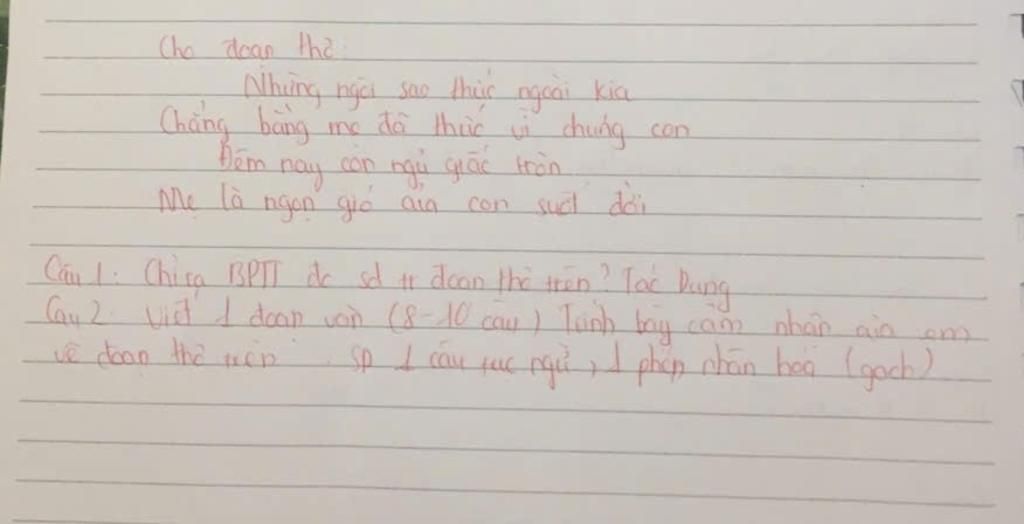 Cho đoạn thơ:
Những ngôi sao thức ngoài kia
Chẳng bằng mẹ đã thức vì chúng con
Đêm nay con ngủ giấc tròn
Mẹ là ngọn gió của con suốt đời
Câu 1: Chỉ ra BPTT đc sd tr đoạn thơ trên? Tác Dụng
Câu 2: Viết 1 đoạn văn (8-10 câu) Trình bày cảm nhận của em
về đoạn thơ trên. SD 1 câu tục ngữ, 1 phép nhân hoá (gạch)